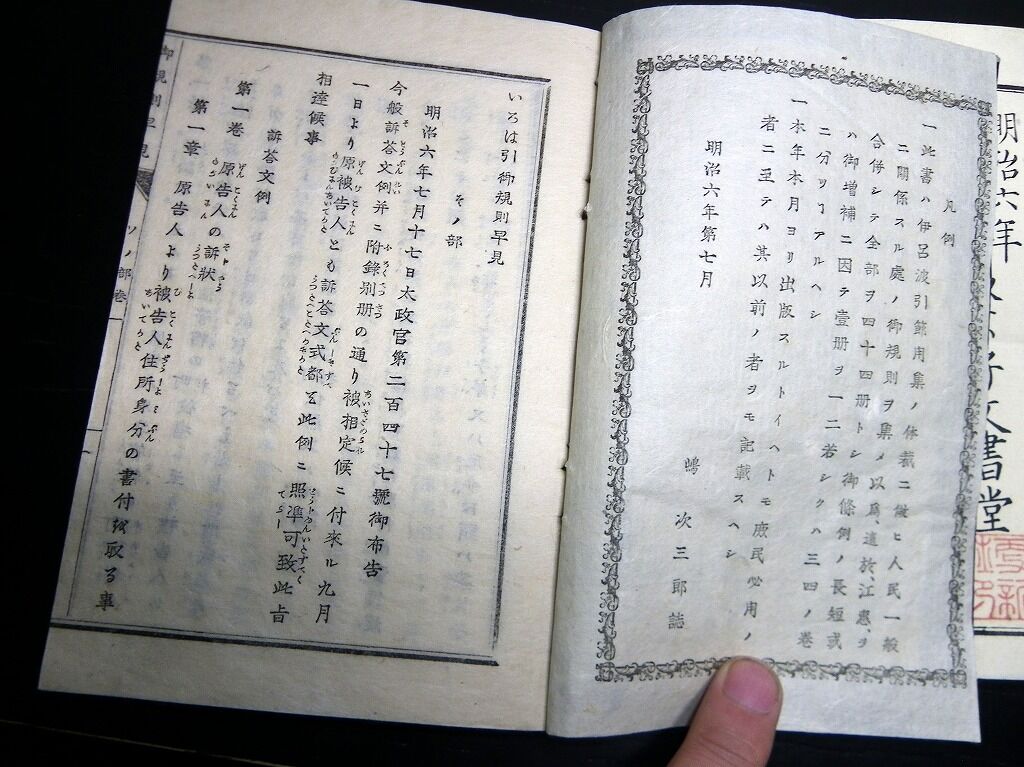 明治六年
文書堂
凡例
一此書ハ伊呂波引節用集ノ体裁ニ倣ヒ人民一般
ニ關係スル處ノ御規則ヲ集メ以爲、違放、江惠、ヲ
合併シテ全部ヲ四十四册トシ御條例ノ長短或
ハ御増補ニ因テ壹册ヲ一二若シクハ三四ノ巻
ニ分ツヿアルヘシ
一本年本月ヨリ出版スルトイヘトモ庶民必用ノ
者ニ至テハ其以前ノ者ヲモ記載スヘシ
明治六年第七月
嶋 次三郎誌
いろは引御規則早見
そノ部
明治六年七月十七日太政官第二百四十七號御布告
今般訴答文例并ニ附録別册の通り被相定候ニ付來ル九月
一日より原被告人とも訴答文式都て此例ニ照準可致此旨
相達候事
訴答文例
第一巻 原告人の訴狀
第一章 原告人より被告人住所身分の書付を取る事
御規則早見
ソノ部巻